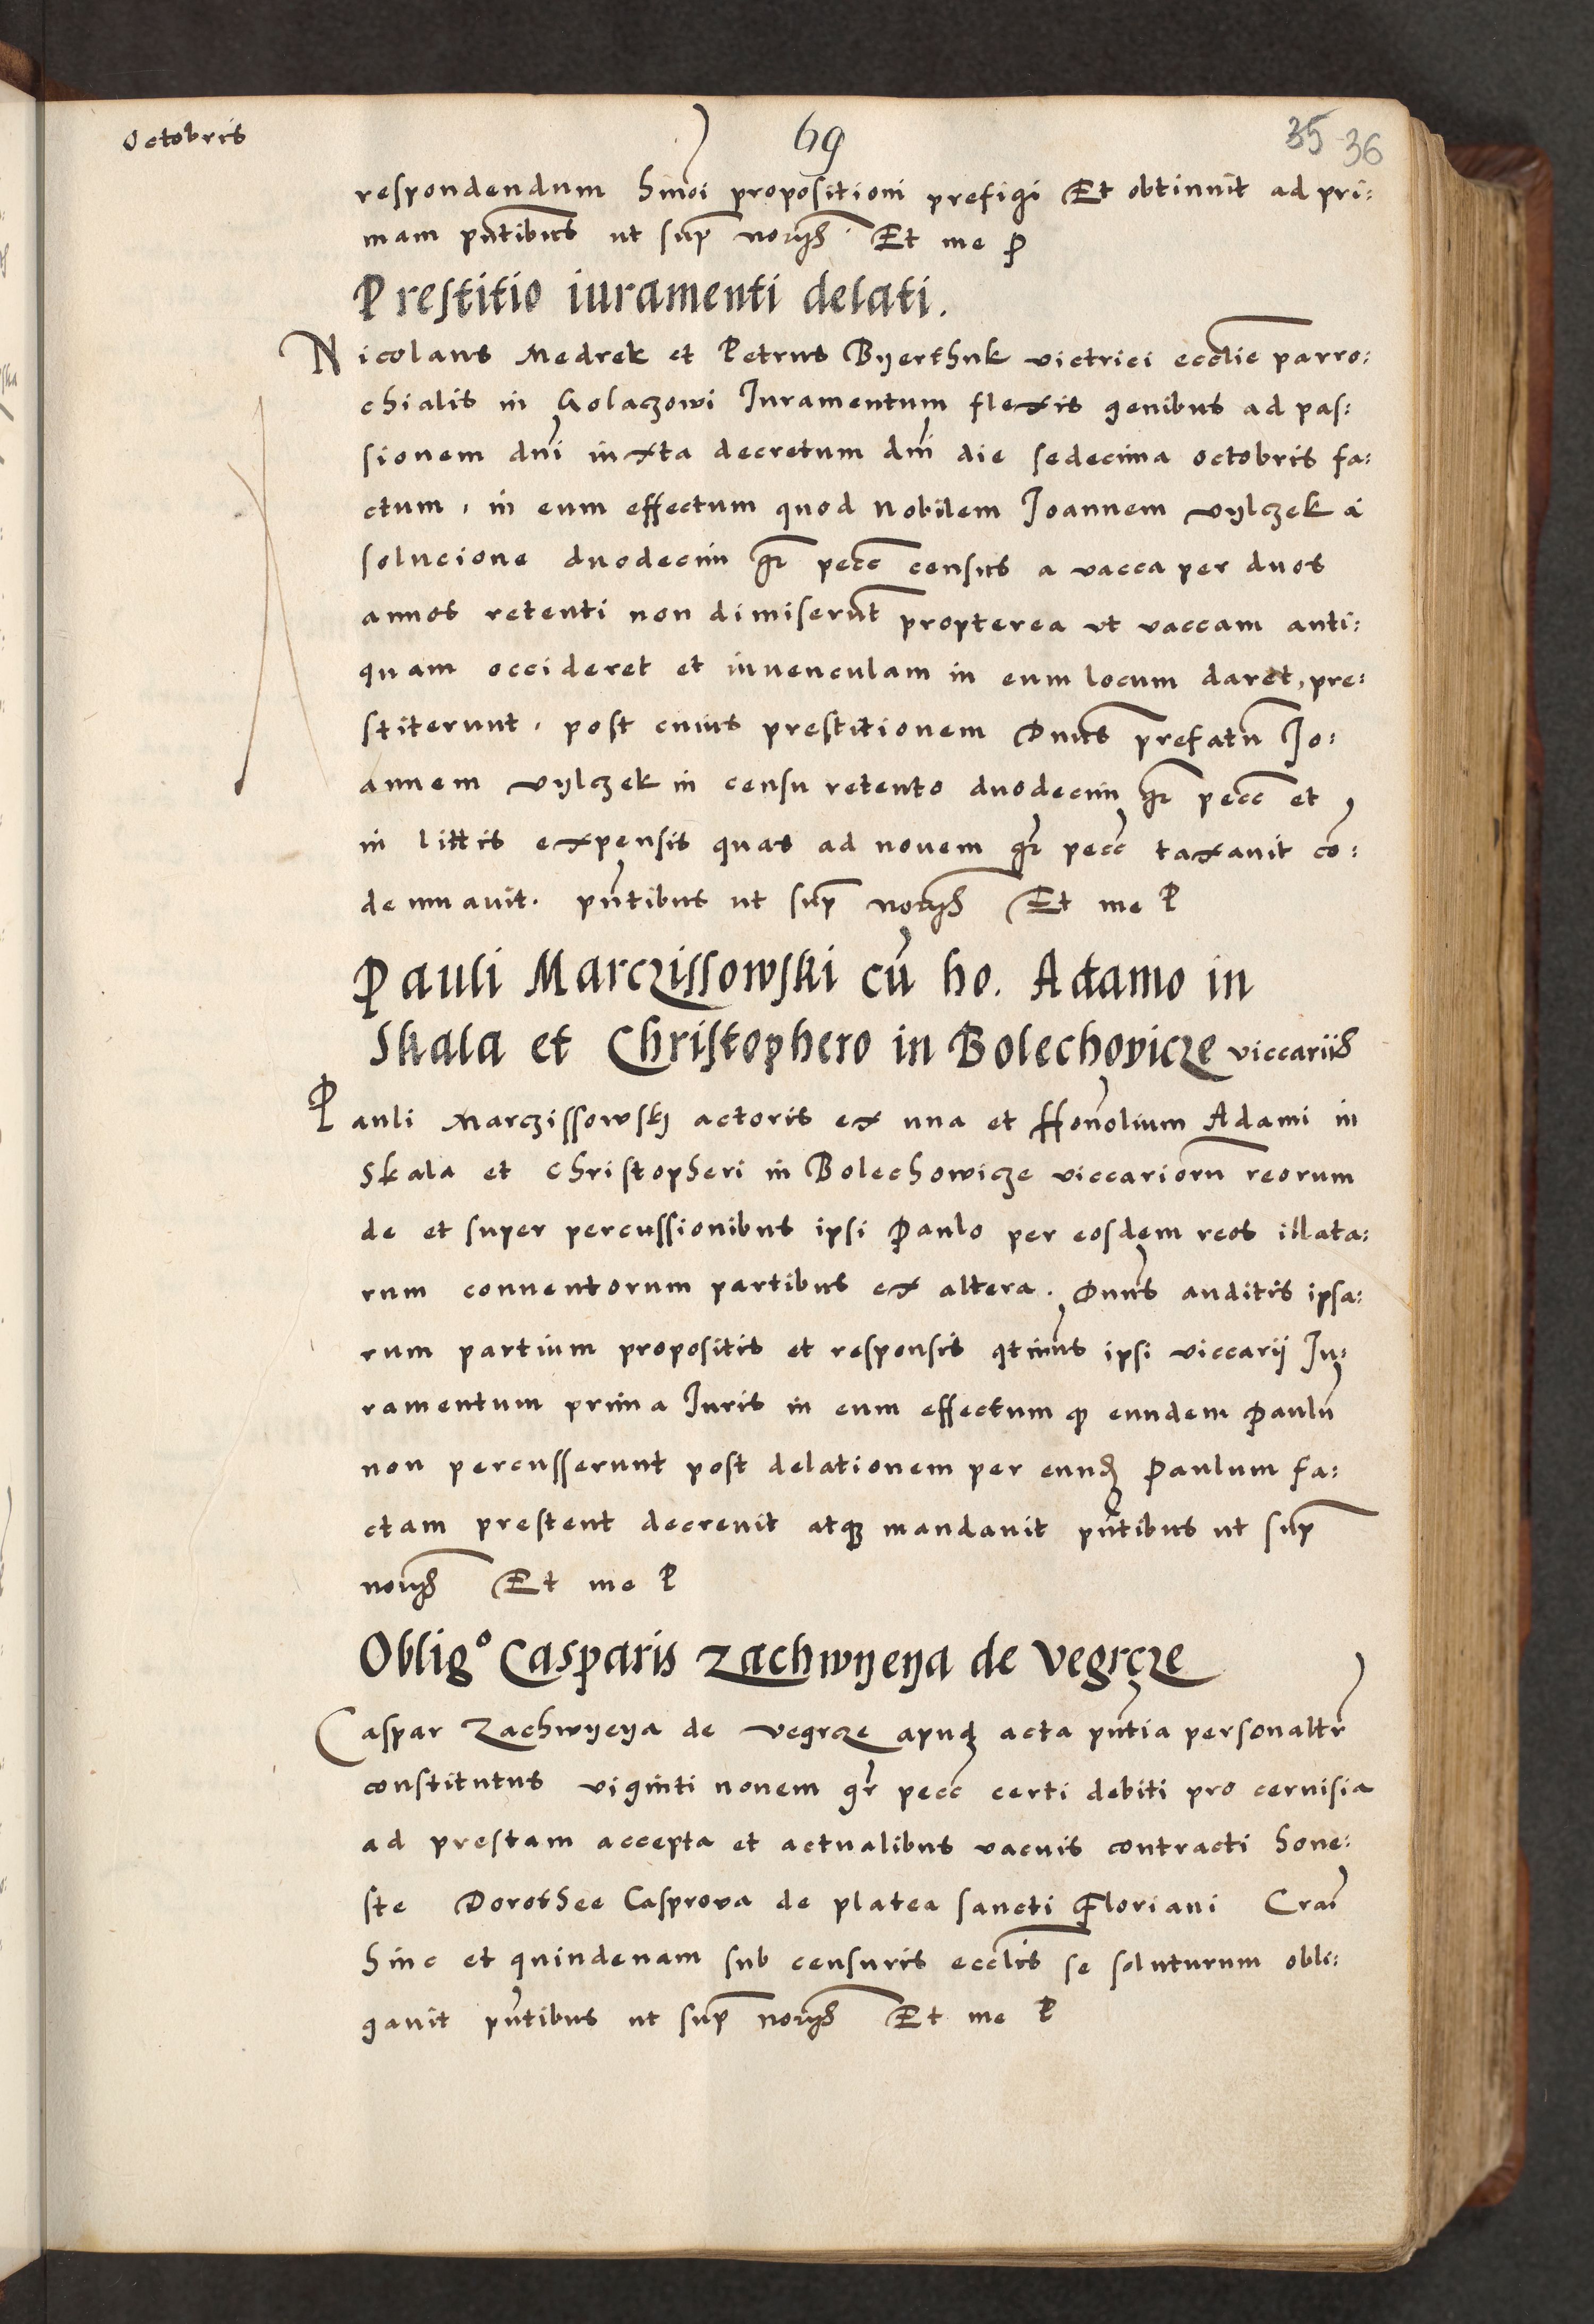 Octobris
69
35 36
respondendum hmōi propositioni prefigi Et obtinuit ad pri:
mam pn̄tibus ut sup̄ Et me P
Prestitio iuramenti delati.
Nicolaus Medrek et Petrus Byerthuk victrici eccl̄ie parro:
chialis in Golaczowi Iuramentum flexis genibus ad pas:
sionem dn̄i iuxta decretum dn̄i die sedecima octobris fa:
ctum, in eum effectum quod Nobilem Joannem Vylczek a
solucione duodecim gr̄ pecc̄ census a vacca per duos
annos retenti non dimiserūt propterea ut vaccam anti:
quam occideret et iuvenculam in eum locum daret, pre:
stiterunt, post cuius prestitionem Dn̄us prefatū Jo:
annem Vylczek in censu retento duodecim gr̄ pecc̄ et
in littis expensis quas ad novem gr̄ pecc̄ taxavit cō:
demnavit. pn̄tibus ut sup̄ Et me P
Pauli Marczissowski cū ho. Adamo in
Skala et Christophero in Bolechovicze viccariis
Pauli Marczissowskj actoris ex una et Honolium Adami in
Skala et Christopheri in Bolechowicze viccariorū reorum
de et super percussionibus ipsi Paulo per eosdem reos illata:
rum conventorum partibus ex altera. Dn̄us auditis ipsa:
rum partium propositis et responsis qtinus ipsi viccarii Ju:
ramentum prima Iuris in eum effectum qꝫ eundem Paulū
non percusserunt post delationem per eundꝫ Paulum fa:
ctam prestent decrevit atqꝫ mandavit pn̄tibus ut sup̄
Et me P
Oblig° Casparis Zachwyeya de Vegrcze
Caspar Zachwyeya de Vegrcze apud acta pn̄tia personaltr̄
constitutus viginti novem gr̄ pecc̄ certi debiti pro cervisia
ad prestam accepta et actualibus vacuis contracti hone:
ste Dorothee Casprova de platea sancti Floriani Crac̄
hinc et quindenam sub censuris eccl̄is se soluturum obli:
gavit pn̄tibus ut sup̄ Et me P